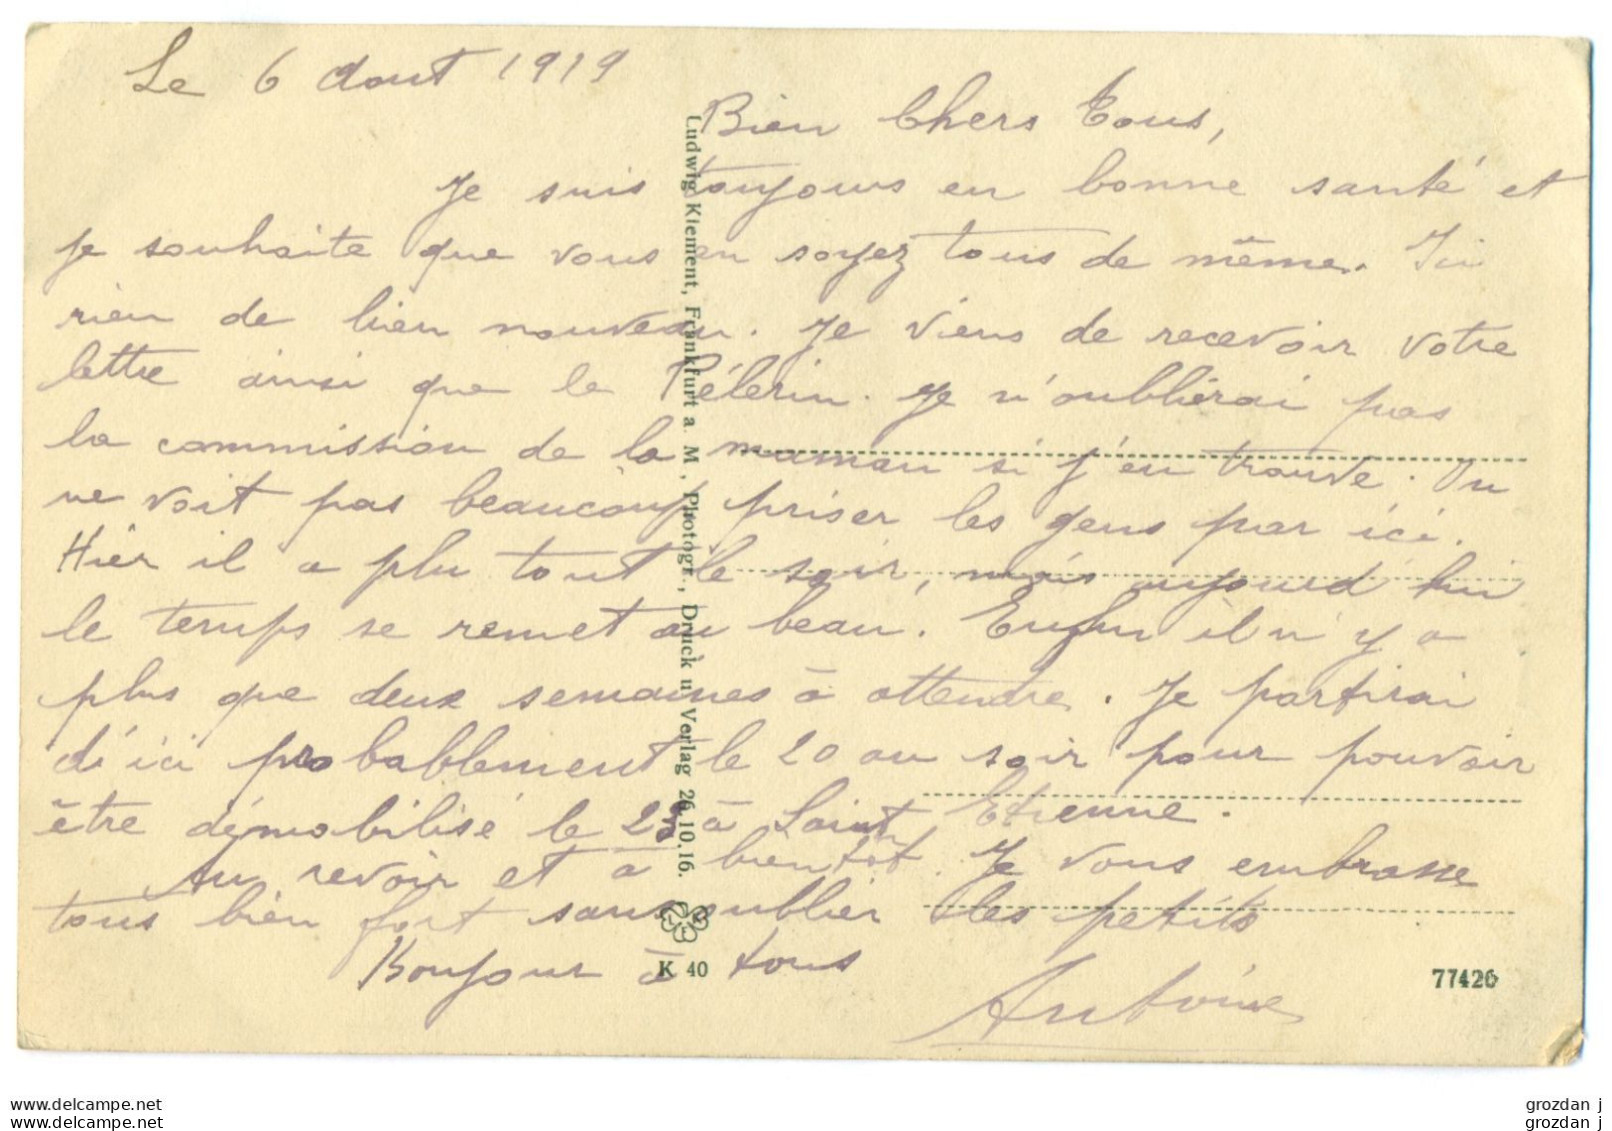 Le 6 Aout 1919
Bien Chers Tous,
Je suis toujours en bonne santé et
je souhaite que vous en soyez tous de même. Ici
rien de bien nouveau. Je viens de recevoir votre
lettre ainsi que le Pélerin. Je n'oublierai pas
la commission de la maman si j'en trouve. On
ne voit pas beaucoup priser les gens par ici.
Hier il a plu tout le soir, mais aujourd'hui
le temps se remet au beau. Enfin il n'y a
plus que deux semaines à attendre. Je partirai
d'ici probablement le 20 au soir pour pouvoir
être démobilisé le 23 à Saint Etienne.
Au revoir et à bientôt. Je vous embrasse
tous bien fort sans oublier les petits
Bonjour à tous
Antoine
Ludwig Klement, Frankfurt a. M., Photogr., Druck u. Verlag 26.10.16.
K 40
77426
www.delcampe.net
www.delcampe.net
grozdan j
grozdan j